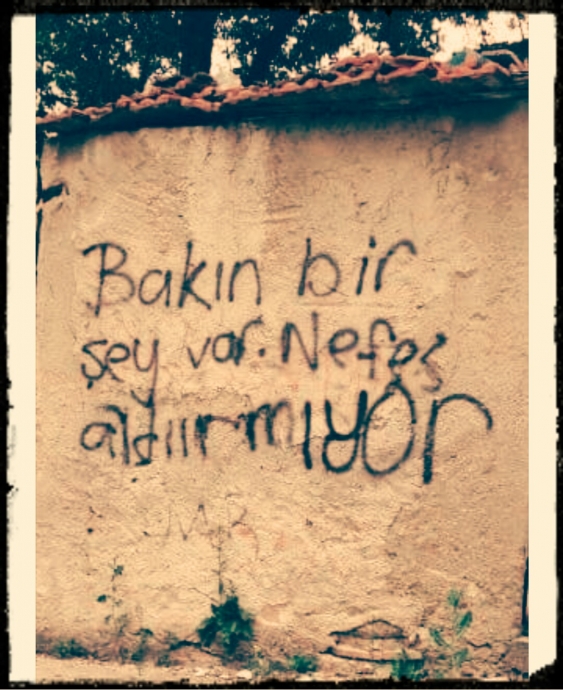 Bakın bir
şey var. Nefes
aldıırmıyor